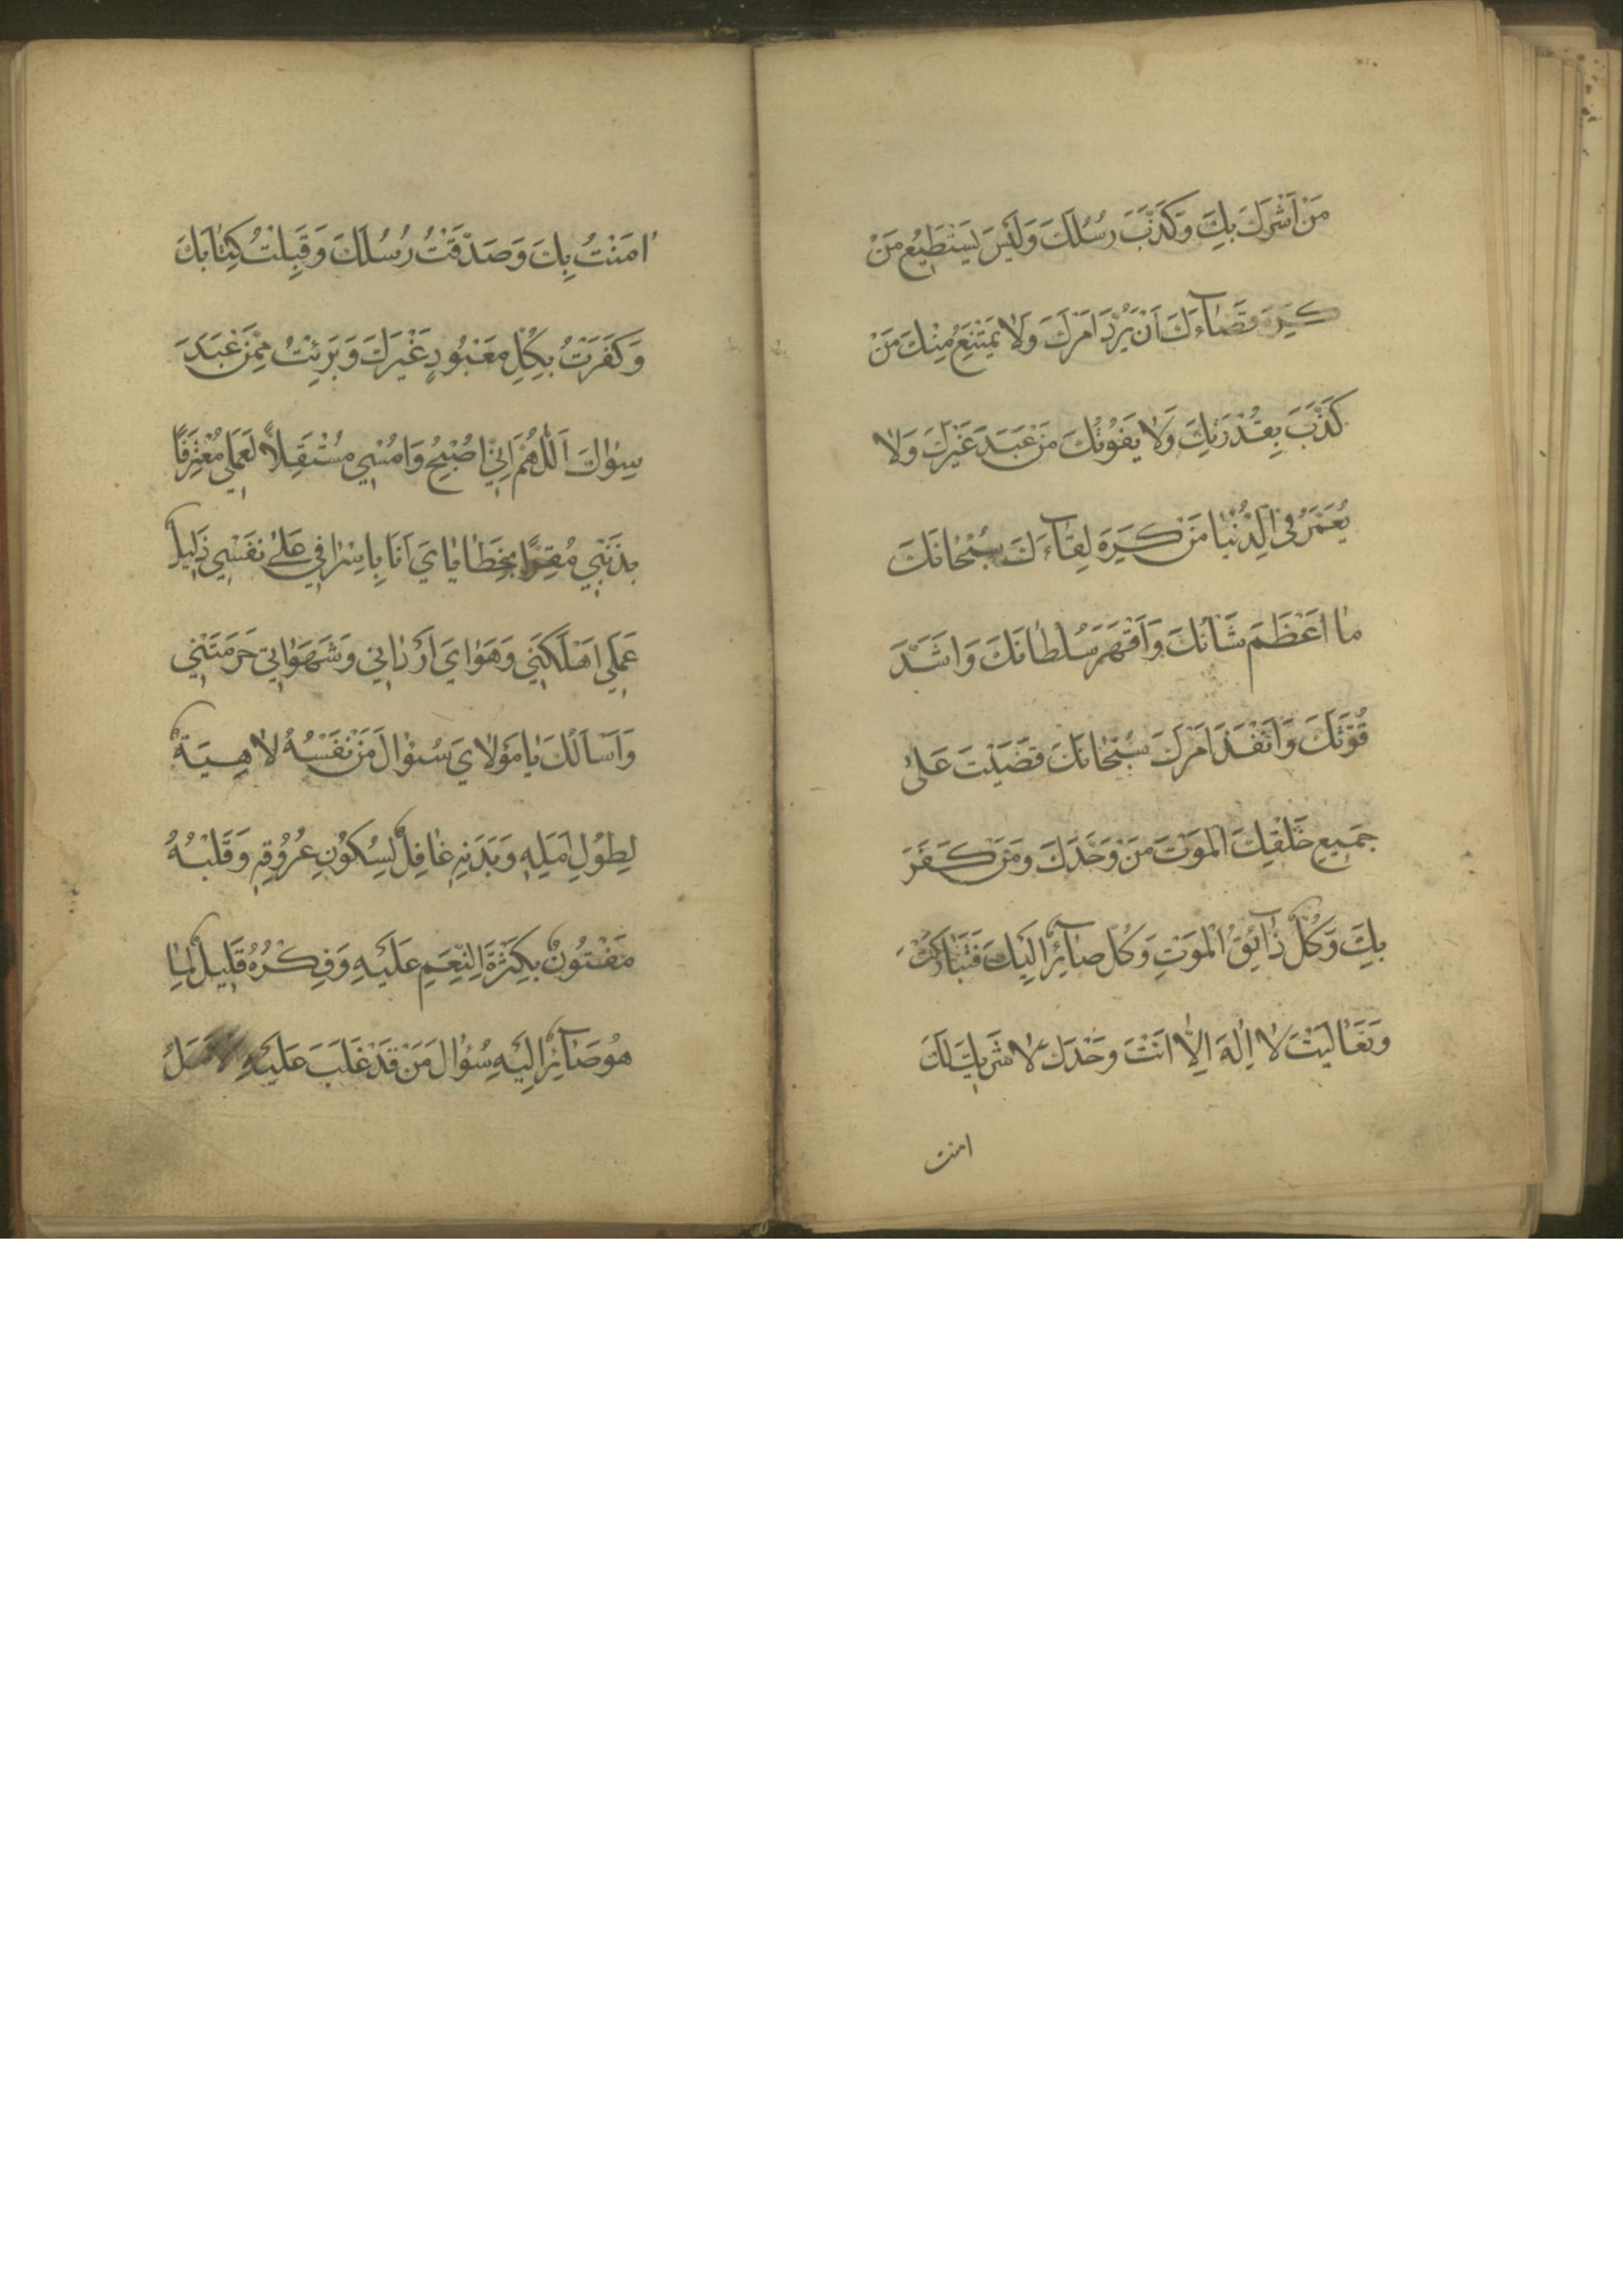 مَنْ اَشْرَكَ بِكَ وَكَذَّبَ رُسُلَكَ وَلَيْسَ يَسْتَطِيعُ مَنْ
كَرِهَ قَضَآءَكَ اَنْ يَرُدَّ اَمْرَكَ وَلَا يَمْتَنِعُ مِنْكَ مَنْ
كَذَّبَ بِقُدْرَتِكَ وَلَا يَفُوتُكَ مَنْ عَبَدَ غَيْرَكَ وَلَا
يُعَمَّرُ فِي الدُّنْيَا مَنْ كَرِهَ لِقَآءَكَ سُبْحَانَكَ
مَا اَعْظَمَ شَأْنَكَ وَاَقْهَرَ سُلْطَانَكَ وَاَشَدَّ
قُوَّتَكَ وَاَنْفَذَ اَمْرَكَ سُبْحَانَكَ قَضَيْتَ عَلىٰ
جَمِيعِ خَلْقِكَ الْمَوْتَ مَنْ وَحَّدَكَ وَمَنْ كَفَرَ
بِكَ وَكُلٌّ ذَائِقُ الْمَوْتِ وَكُلٌّ صَآئِرٌ اِلَيْكَ فَتَبَارَكْتَ
وَتَعَالَيْتَ لَا اِلٰهَ اِلَّا اَنْتَ وَحْدَكَ لَا شَرِيكَ لَكَ
امنت
اٰمَنْتُ بِكَ وَصَدَّقْتُ رُسُلَكَ وَقَبِلْتُ كِتَابَكَ
وَكَفَرْتُ بِكُلِّ مَعْبُودٍ غَيْرِكَ وَبَرِئْتُ مِمَّنْ عَبَدَ
سِوَاكَ اَللّٰهُمَّ اِنِّي اُصْبِحُ وَاُمْسِي مُسْتَقِلًّا لِعَمَلِي مُعْتَرِفًا
بِذَنْبِي مُقِرًّا بِخَطَايَايَ اَنَا بِاِسْرَافِي عَلىٰ نَفْسِي ذَلِيلٌ
عَمَلِي اَهْلَكَنِي وَهَوَايَ اَرْدَانِي وَشَهَوَاتِي حَرَمَتْنِي
وَاَسْاَلُكَ يَا مَوْلَايَ سُؤَالَ مَنْ نَفْسُهُ لَاهِيَةٌ
لِطُولِ اَمَلِهِ وَبَدَنِهِ غَافِلٌ لِسُكُونِ عُرُوقِهِ وَقَلْبُهُ
مَفْتُونٌ بِكَثْرَةِ النِّعَمِ عَلَيْهِ وَفِكْرُهُ قَلِيلٌ لِمَا
هُوَ صَآئِرٌ اِلَيْهِ سُؤَالَ مَنْ قَدْ غَلَبَ عَلَيْهِ الْاَمَلُ